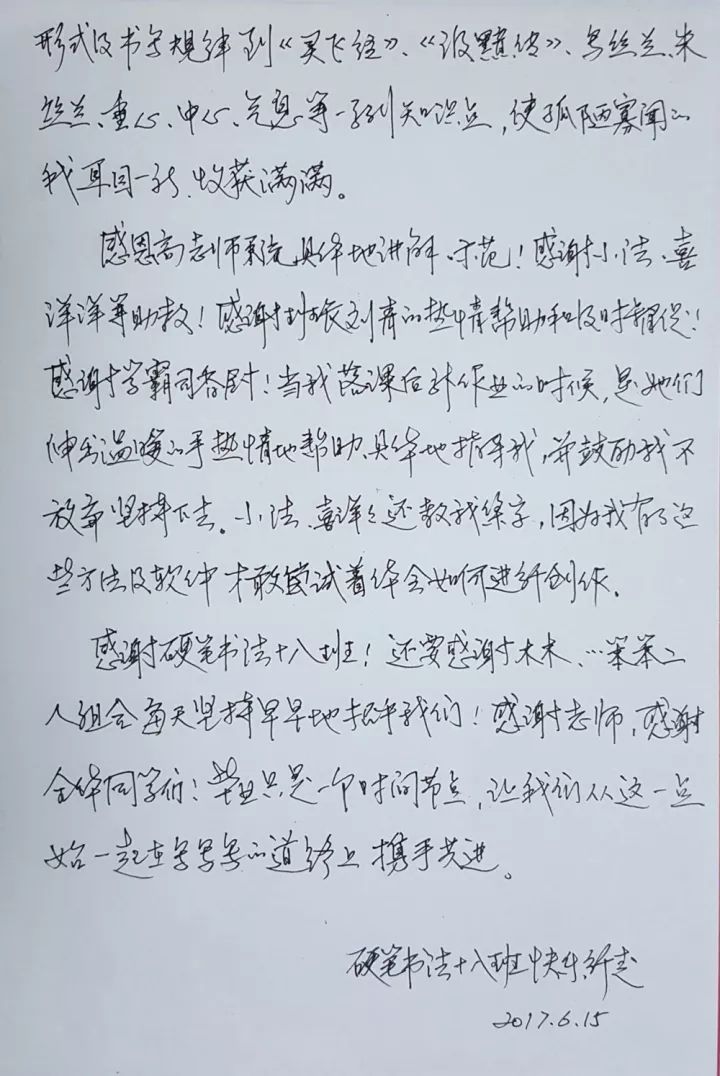 形式及书写规律到《灵飞经》、《汲黯传》、乌丝兰、朱
丝兰、重心、中心、气息等一系列知识点，使孤陋寡闻的
我耳目一新、收获满满。
感恩高老师系统、具体地讲解、示范！感谢小洁、喜
洋洋等助教！感谢班长刘青的热情帮助和及时督促！
感谢学霸司香尉！当我落课后补作业的时候，是她们
伸出温暖的手热情地帮助、具体地指导我，并鼓励我不
放弃坚持下去。小洁、喜洋洋还教我练字，因为我有了这
些方法及软件才敢尝试着体会如何进行创作。
感谢硬笔书法十八班！还要感谢木木、…笨笨二
人组合每天坚持早早地招呼我们！感谢老师，感谢
全体同学们！毕业只是一个时间节点，让我们从这一点
始一起在写写写的道路上携手共进。
硬笔书法十八班快乐行走
2017.6.15